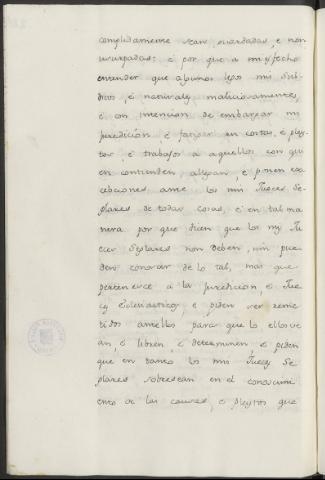 complidamente sean guardadas, e non
usurpadas: e por que a mi es fecho
entender que algunos legos mis sub-
ditos, é naturales, maliciosamente,
é con intencion de embargar mi
juredicion, é fatigar en costas, é pley-
tos, é trabajos a aquellos con qui
en contienden, alegan, é ponen exe
cebciones ante los mis Jueces Se-
glares de todas cosas, é en tal ma
nera por que dicen que los mis Ju
eces Seglares non deben, nin pue
den conocer de lo tal, mas que
pertenesce a la juredicion, é Jue
ces Eclesiasticos, é piden ser remi
tidos antellos para que lo ellos ve
an, é libren, é determinen é piden
que en tanto los mis Jueces Se
glares sobresean en el conoscimi
ento de las causas, é pleytos que